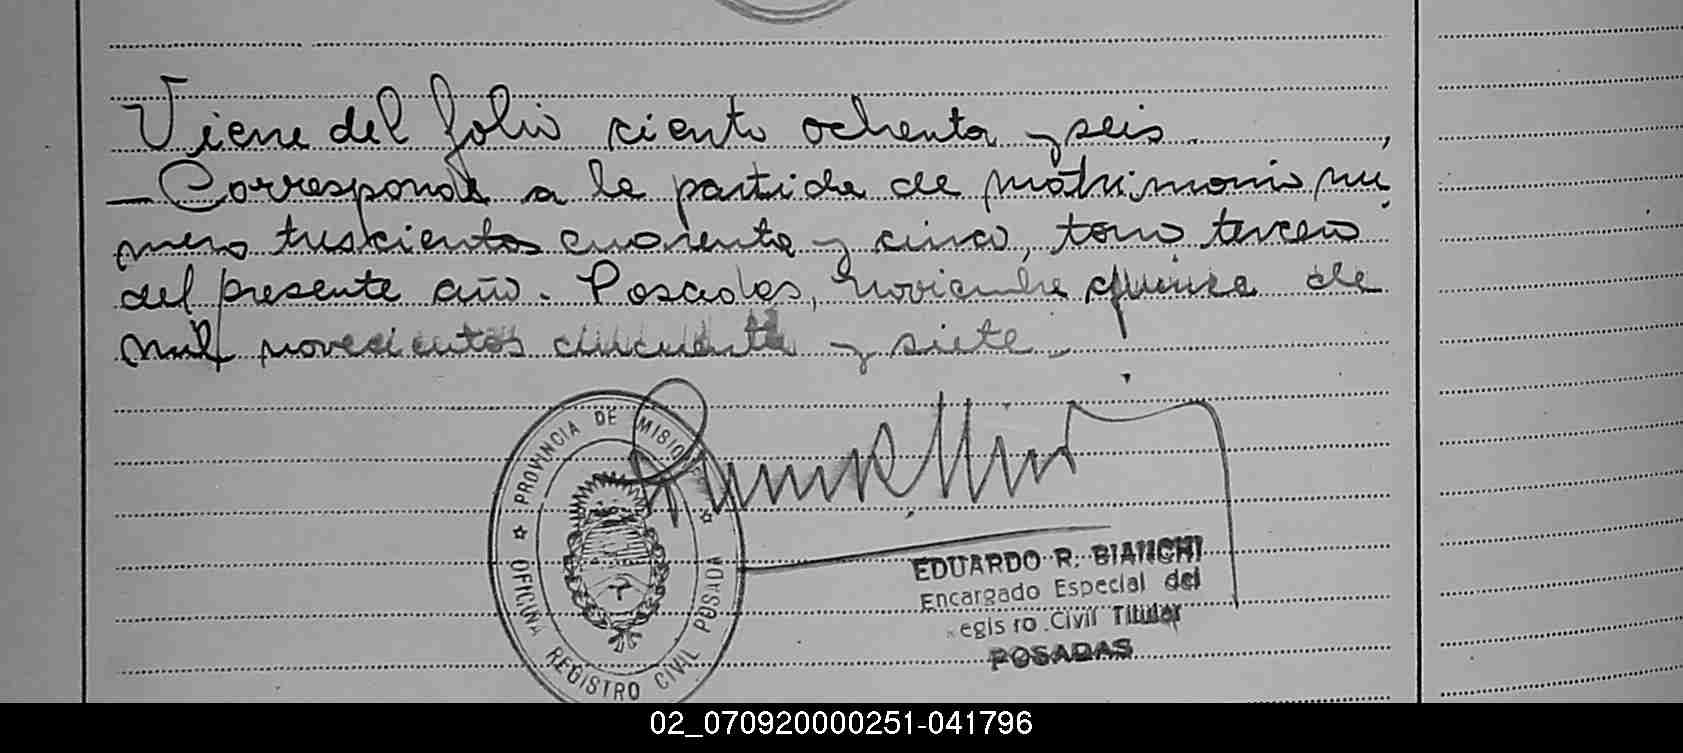 Viene del folio ciento ochenta y seis.
— Corresponde a la partida de matrimonio nú
mero trescientos cuarenta y cinco, tomo tercero
del presente año. Posadas, noviembre quince de
mil novecientos cincuenta y siete.
PROVINCIA DE MISIO
OFICINA REGISTRO CIVIL POSADA
EDUARDO R. BIANCHI
Encargado Especial del
egis ro Civil Titular
POSADAS
02_070920000251-041796